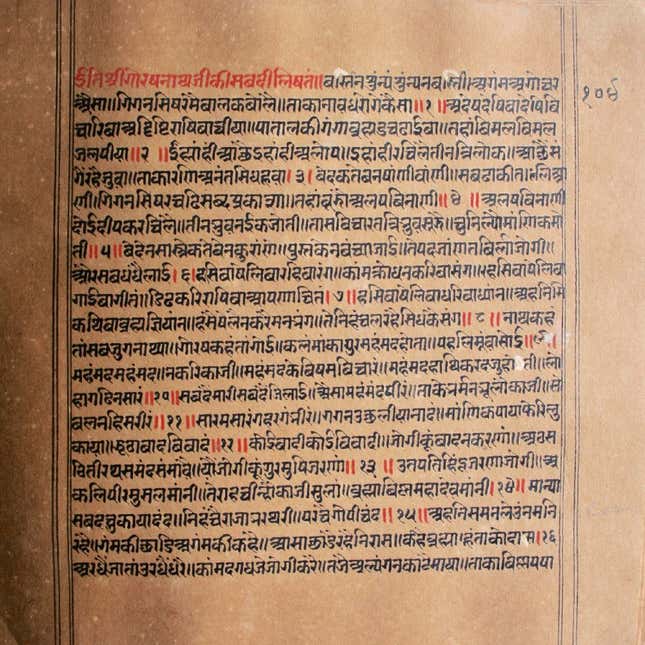 ईतिश्रीगोरषनाथजीकीसबदीलिषतं॥बास्तंनसुंन्यंसुंन्यनबास्ती॥अगंमअगोचर
अैसा॥गिगनसिषरंमैबालकबोलै॥ताकानावधरोगेकैसा॥१॥अदेषदेषिबादेषिबि
चारिबाअदिष्टिराषिबाचीया॥पातालकीगंगाब्रह्मंडचढाईबा॥तहांबिमलबिमल
जलपीया॥२॥ईहांहीआछैईहांहीअलोप॥ईहांहीरचिलैतीनत्रिलोक॥आछैसं
गैरहैजुवा॥ताकारणिअनंतसिधहूवा।३।बेदकतेबनषांणीबांणी॥सबढाकीतलिआ
णी॥गिगनिसिषरचढिसब्दप्रकास्या॥तहांबुझैअलषबिनांणी॥४॥अलषबिनांणी
दोईदीपकरचिलै॥तीनभुवनईकजोती॥तासबिचारतत्रिभुवसुझै॥चुनिल्योमांणिकमो
ती॥५॥बेदेनसास्त्रेकतेबेनकुरांणे॥पुस्तकेनबंच्याजाई॥तेपदजांणतबिर्लाजोगी॥
औरसबधंधैलाई।६।हसिबाषेलिबारहिबारंग॥कामक्रोधनकरिबासंग॥हसिबाषेलिबा
गाईबागीतं॥डिढकरिराषिबाआपणाचितं।७।हसिबाषेलिबाधरिबाध्यानं॥अहनिसि
कथिबाब्रह्मगियानं॥हंसेषेलेनकरैमनभंग॥तेनिहचलरहैसिधकेसंग॥८॥नाथकह
तांसबजुगनाथ्या॥गोरषकहतांगोई॥कलमांकागुरमहंमदहोता॥पहलिमूवासोई॥९॥
महंमदमहंमद॥नकरिकाजी॥महंमदकाबिषमबिचारं॥महंमदहाथिकरदजुहोती॥लो
हागढिनसारं॥१०॥सबदैमारीसबदैजिलाई॥अैसामहंमदपीरं॥ताकेभ्रमिनभूलोकाजी॥सो
बलनहिसरीरं॥११॥सारमसारंगहरगंभीरं॥गगनउछलीयानादं॥मांणिकपायाफेरिलु
काया॥झूठाबादबिवादं॥१२॥कोईबादीकोईबिवादी॥जोगीकूंबादनकरणां॥अठस
ठितीरथसमंदसंमांवै॥यौंजोगीकूंगुरमुषिजरणां॥१३॥उतपतिहिंदूजरणाजोगी॥अ
कलिपीरमुसलमांनी॥तेराहचीन्होकाजीमुलां॥ब्रह्माबिस्नमहादेवमांनी।१४॥मान्या
सबदचुकायादंद॥निहचैराजाभरथरी॥परचैगोपीचंद॥१५॥अहनिसमनलेउनमनि
रहै॥गंमकीछाडिअगंमकीकहै॥आसाछाडैरहैनिरास॥कहैब्रह्माहूंताकोदास।१६
अरधैजातांउरधैधरै॥कांमदगधजेजोगीकरै॥तजैअल्यंगनकाटैमाया॥ताकाबिस्नपषा
१०६